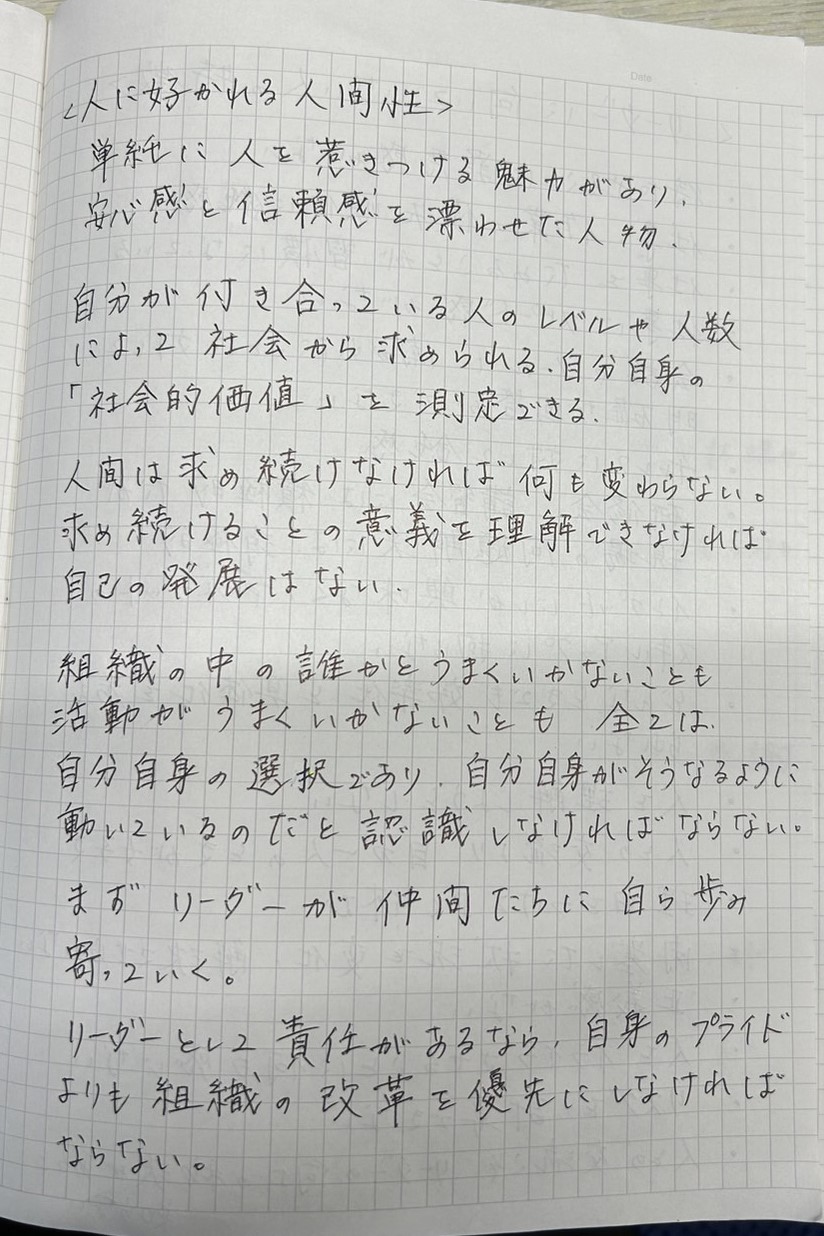 Date
<人に好かれる人間性>
単純に人を惹きつける魅力があり、
安心感と信頼感を漂わせた人物.
自分が付き合っている人のレベルや人数
によって社会から求められる、自分自身の
「社会的価値」を測定できる.
人間は求め続けなければ何も変わらない。
求め続けることの意義を理解できなければ
自己の発展はない.
組織の中の誰かとうまくいかないことも
活動がうまくいかないことも 全ては、
自分自身の選択であり、自分自身がそうなるように
動いているのだと認識しなければならない。
まずリーダーが仲間たちに自ら歩み
寄っていく。
リーダーとして責任があるなら、自身のプライド
よりも組織の改革を優先にしなければ
ならない。